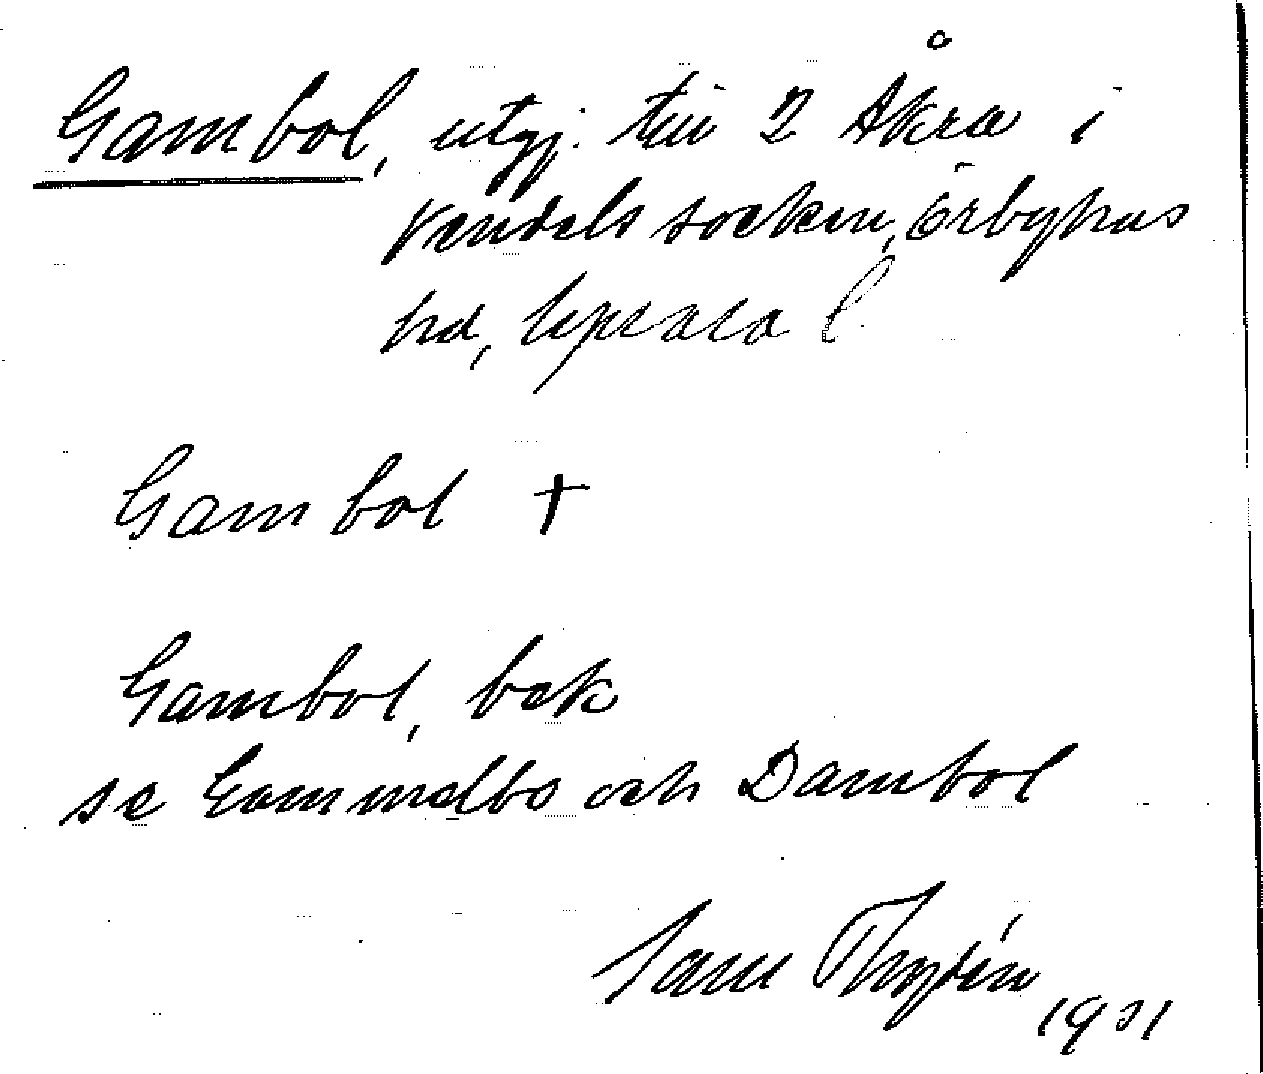 Gambol, utgj. till 2 Åkra i
Vendels socken, Örbyhus
hd, Upsala l.
Gambol †
Gambol, bek
se Gammelbo och Dambol
Sam